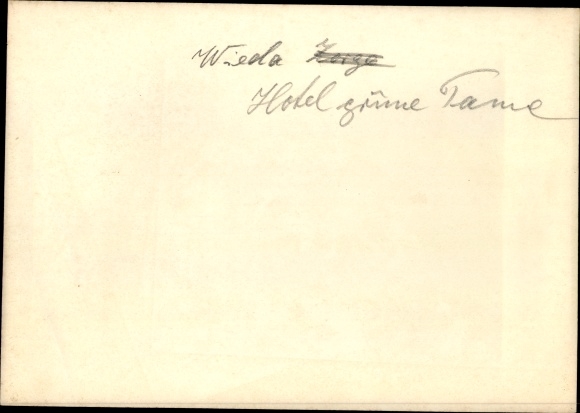 Wieda Zorge
Hotel grüne Tanne